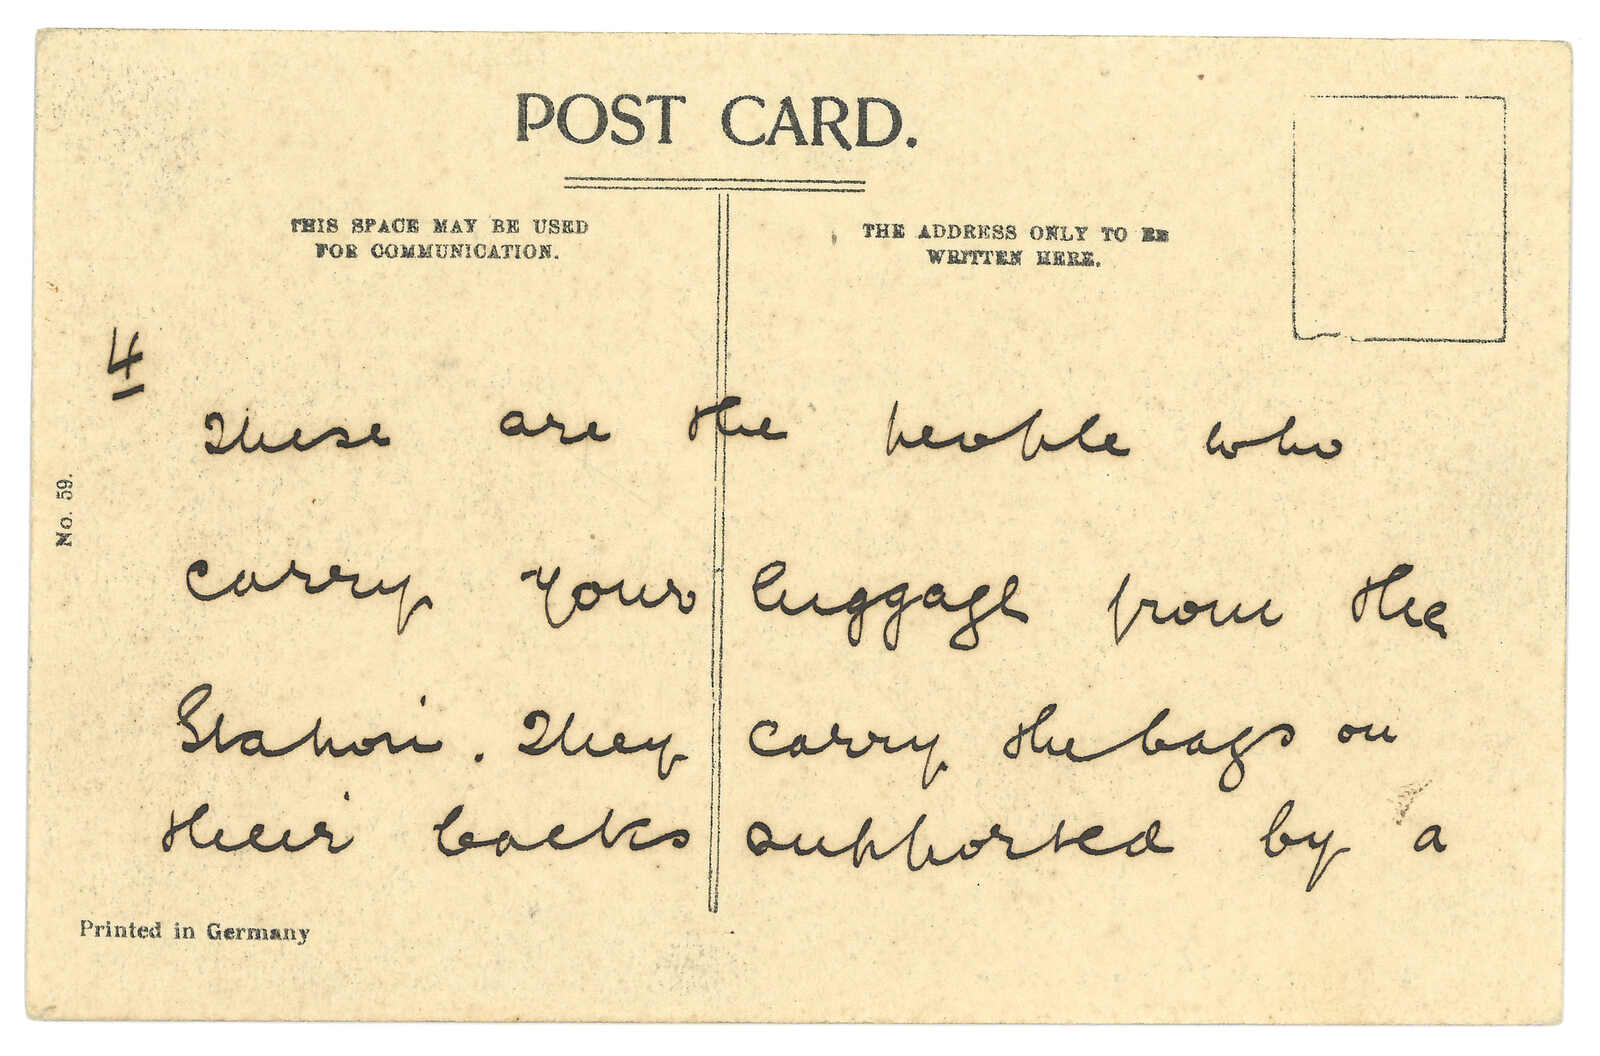 POST CARD.
THIS SPACE MAY BE USED
FOR COMMUNICATION.
THE ADDRESS ONLY TO BE
WRITTEN HERE.
4
These are the people who
carry your luggage from the
Station. They carry the bags on
their backs supported by a
No. 59.
Printed in Germany